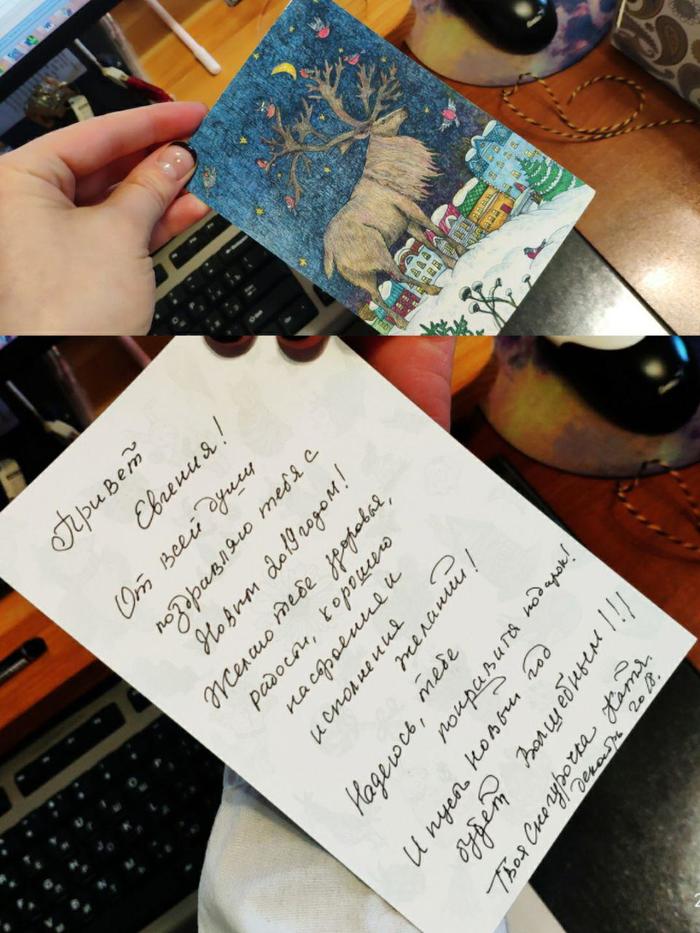 Привет
Евгения!
От всей души
поздравляю тебя с
Новым 2019 годом!
Желаю тебе здоровья,
радости, хорошего
настроения и
исполнения
желаний!
Надеюсь, тебе
понравится подарок!
И пусть новый год
будет Волшебным!!!
Твоя Снегурочка Катя.
декабрь 2018.